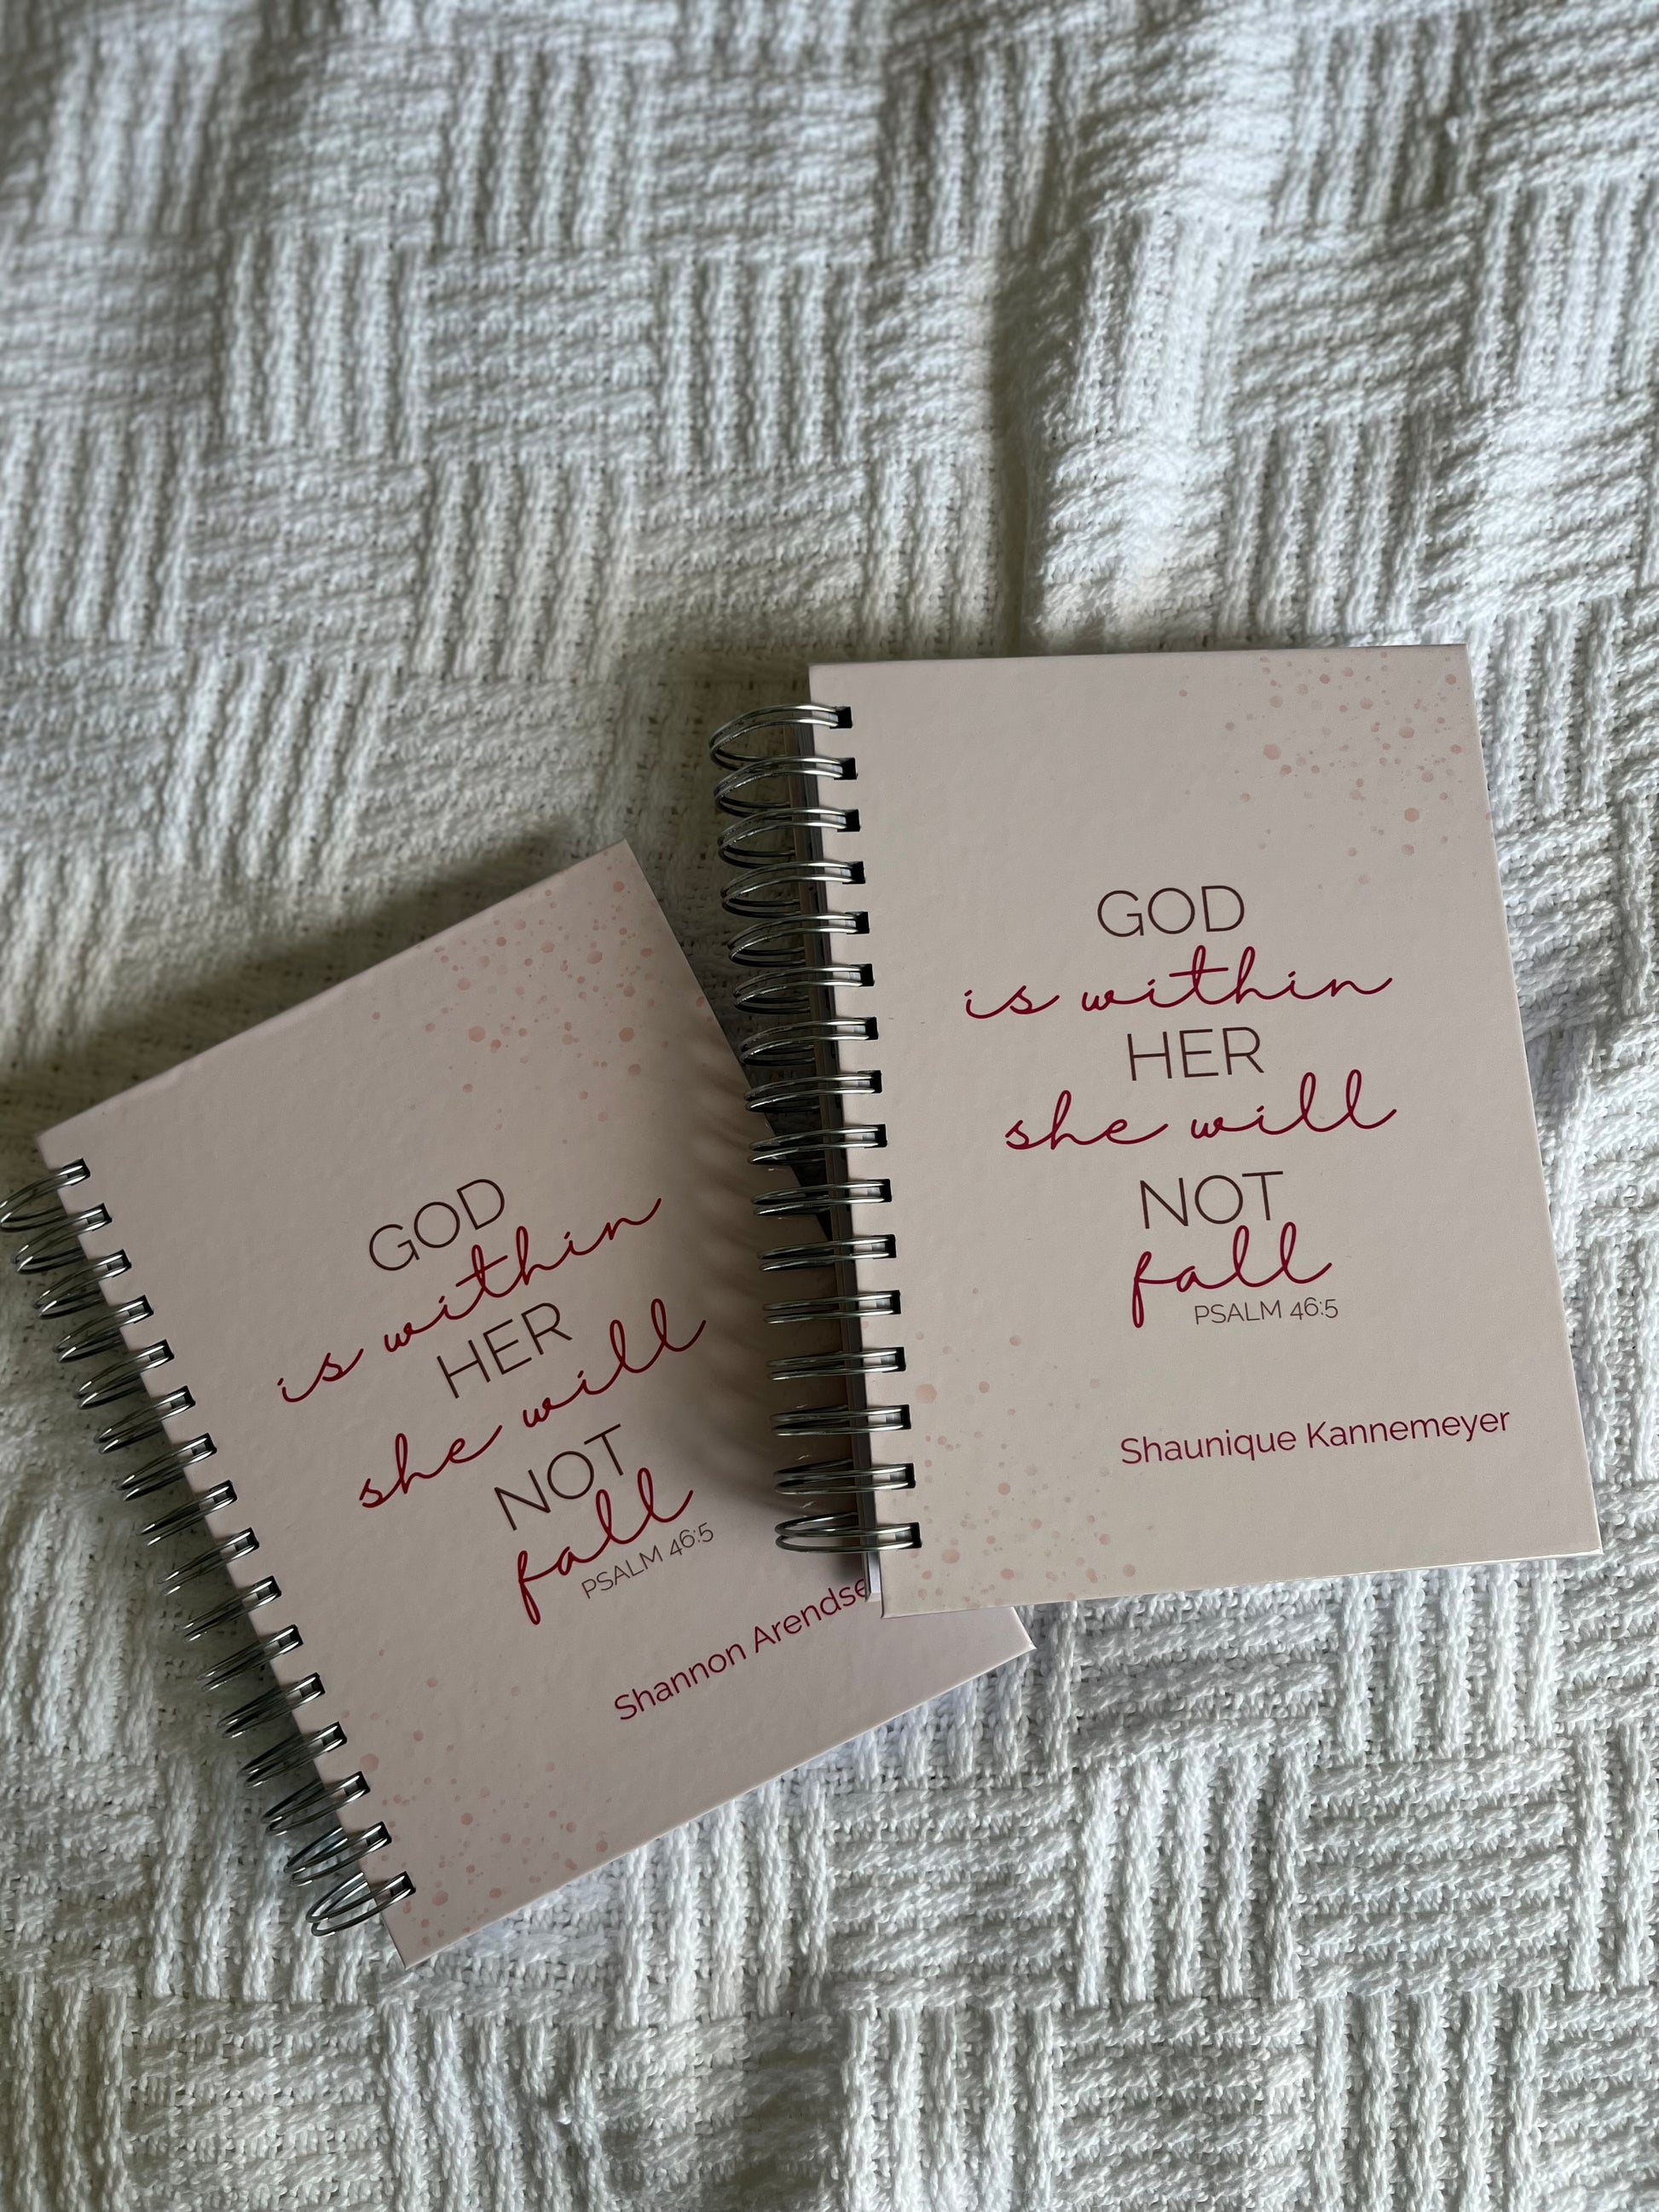 GOD
is within
HER
she will
NOT
fall
PSALM 46:5
Shannon
GOD
is within
HER
she will
NOT
fall
PSALM 46:5
Shaunique Kannemeyer